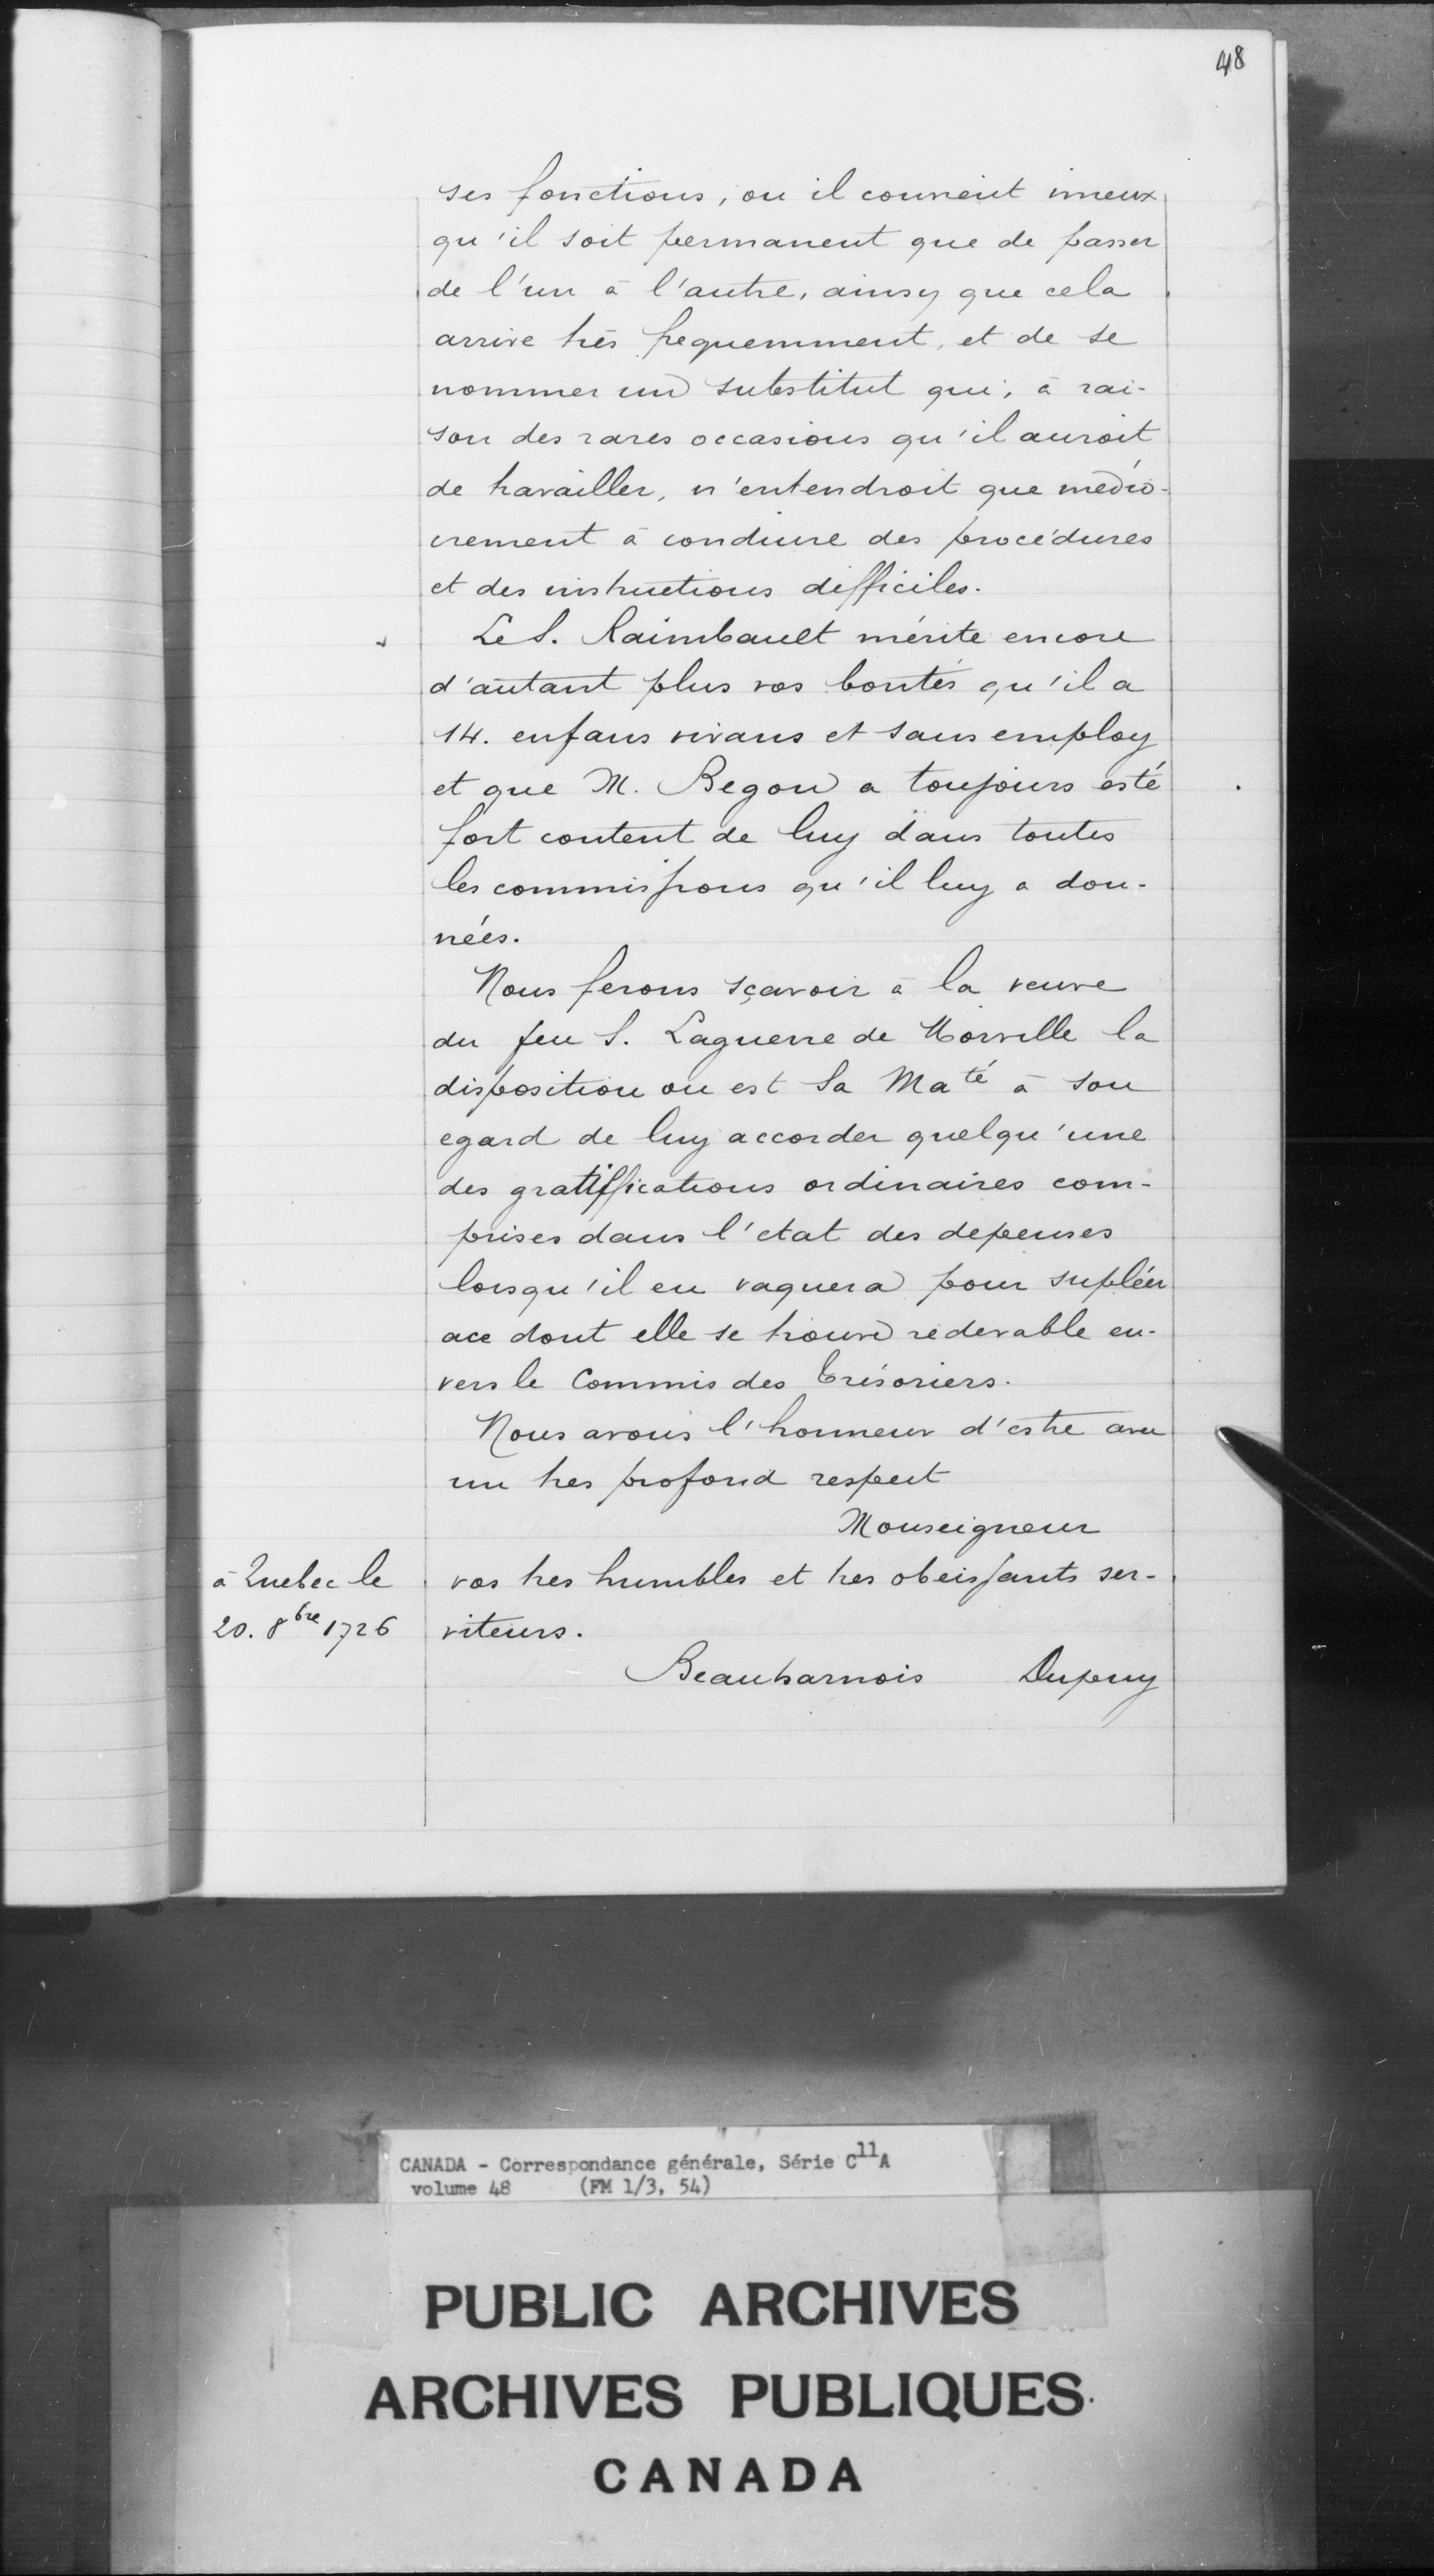 48
ses fonctions, ou il convient mieux
qu'il soit permanent que de passer
de l'un à l'autre, ainsy que cela
arrive très frequemment, et de se
nommer un substitut qui, à rai-
son des rares occasions qu'il auroit
de travailler, n'entendroit que médio-
crement à conduire des procédures
et des instructions difficiles.
Le S. Raimbault mérite encore
d'autant plus vos bontés qu'il a
14. enfans vivans et sans employ
et que M. Begon a toujours esté
fort content de luy dans toutes
les commissions qu'il luy a don-
nées.
Nous ferons sçavoir à la veuve
du feu S. Laguerre de Morville la
disposition ou est Sa Maté à son
egard de luy accorder quelqu'une
des gratiffications ordinaires com-
prises dans l'etat des depenses
lorsqu'il en vaquera pour supléer
ace dont elle se trouve redevable en-
vers le Commis des Trésoriers.
Nous avons l'honneur d'estre avec
un tres profond respect
Monseigneur
à Quebec le
20. 8bre 1726
vos tres humbles et tres obeissants ser-
viteurs.
Beauharnois Dupuy
CANADA - Correspondance générale, Série C11A
volume 48 (FM 1/3, 54)
PUBLIC ARCHIVES
ARCHIVES PUBLIQUES
CANADA